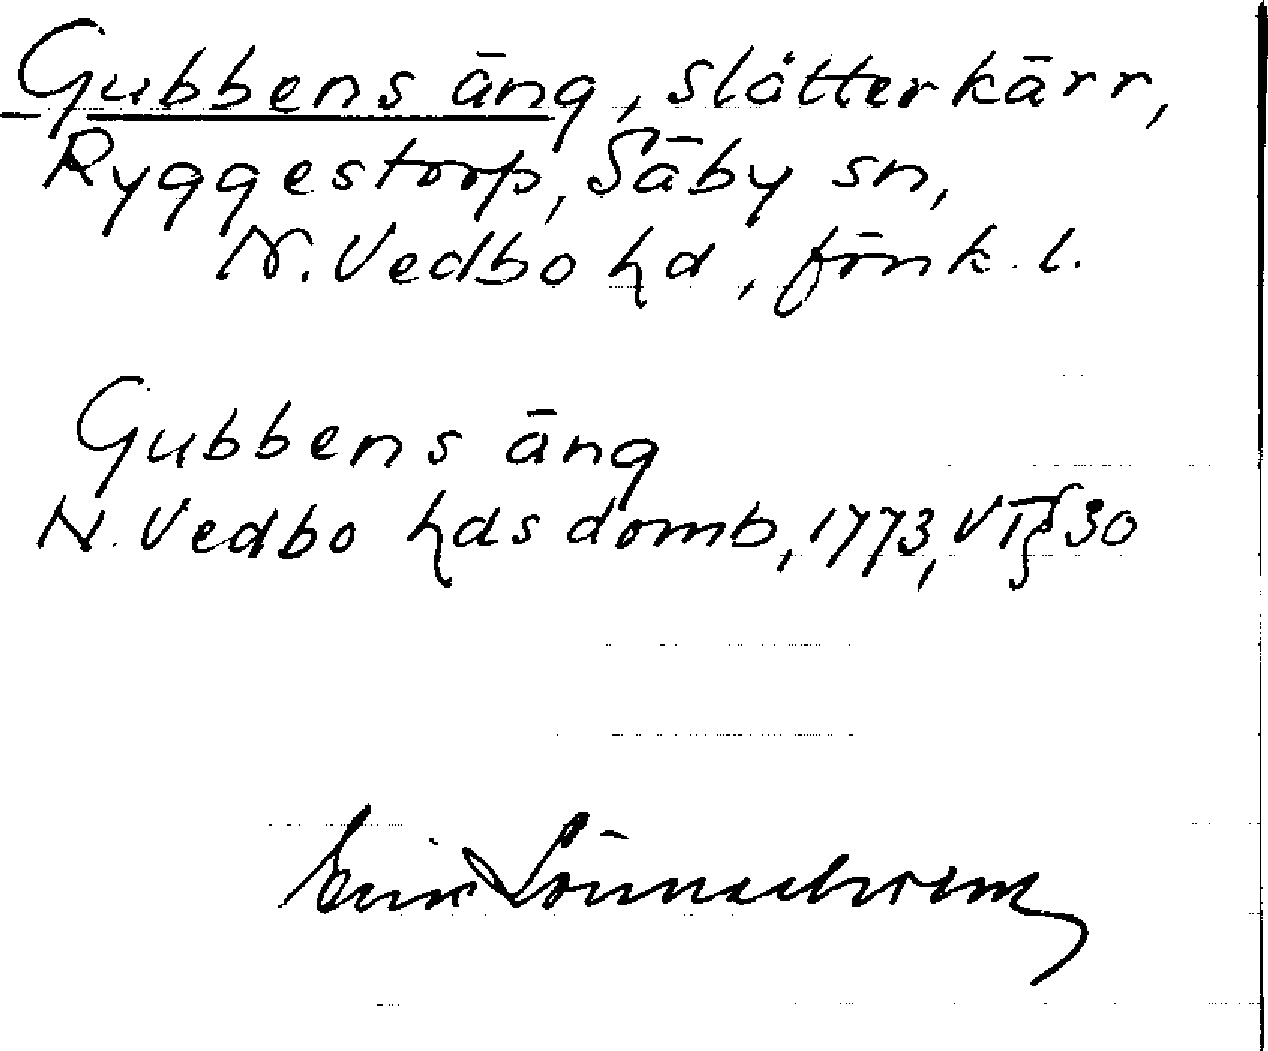 Gubbens äng, slåtterkärr,
Ryggestorp, Säby sn,
N. Vedbo hd, Jönk. l.
Gubbens äng
N. Vedbo hds domb, 1773, VT § 30
Erik Lönnerholm